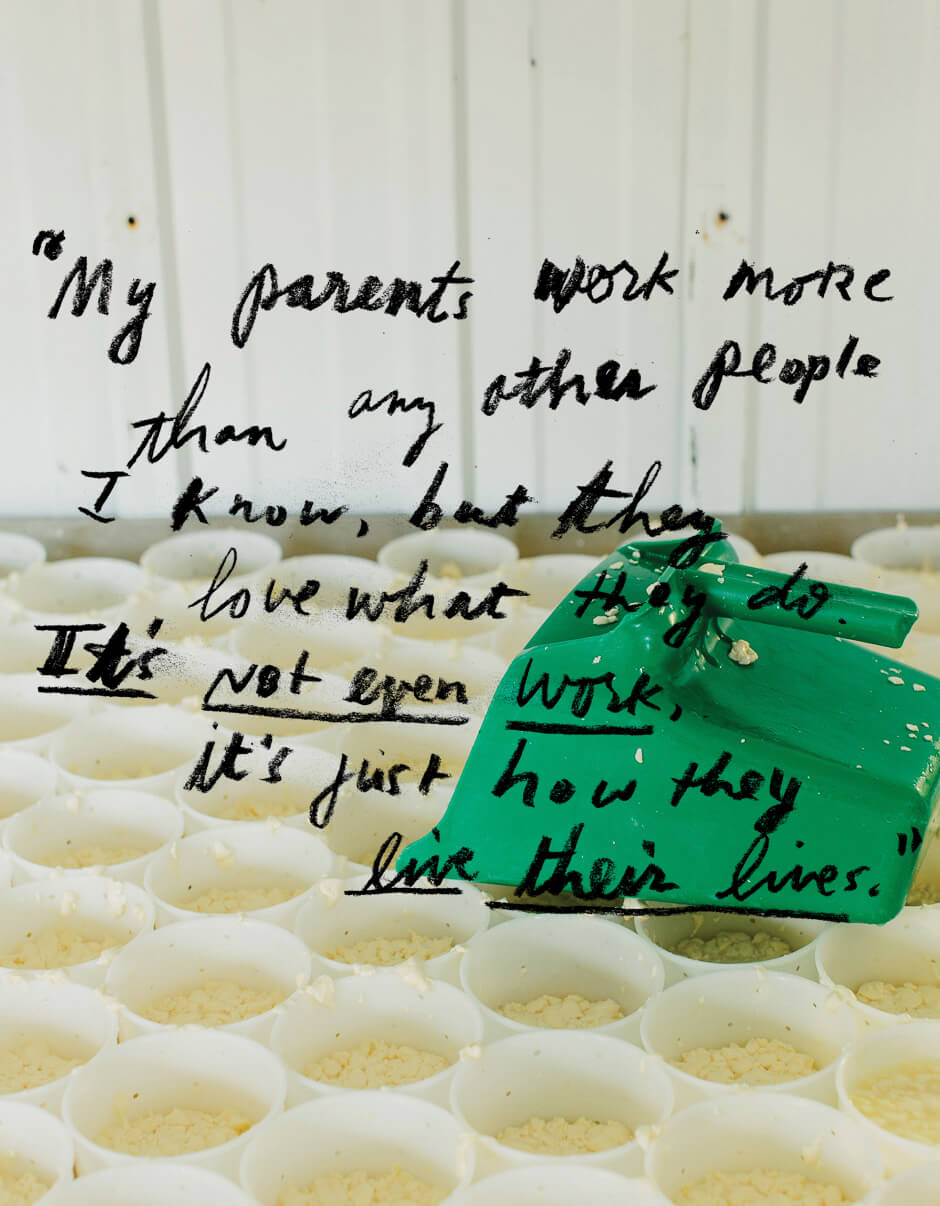 "My parents work more
than any other people
I know, but they
love what they do.
It's not even work,
it's just how they
live their lives."